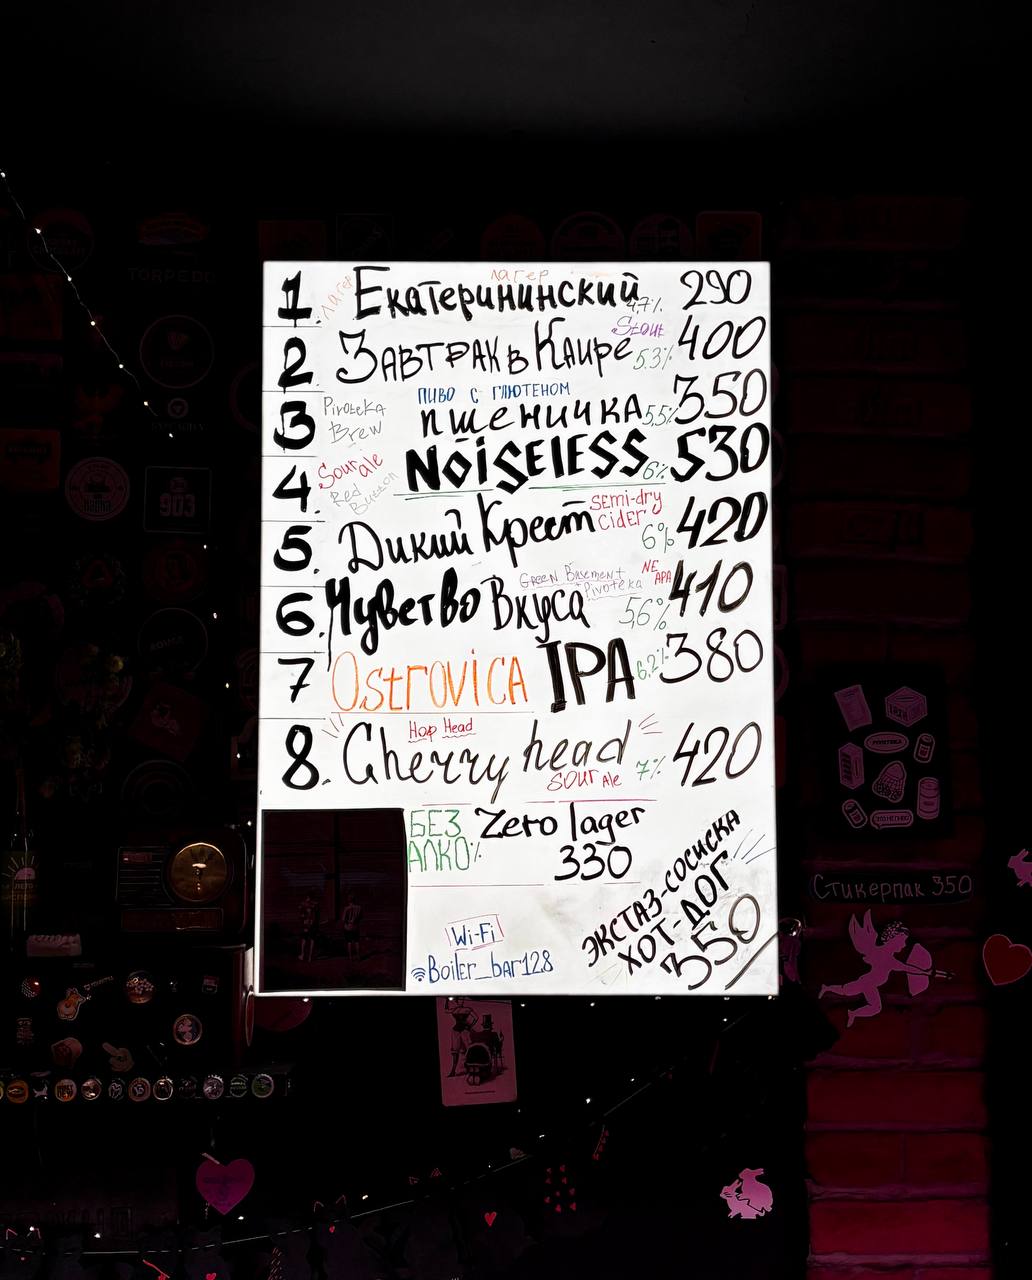 TORPEDO
903
лагер
1. лагер Екатерининский 4,7% 290
Stout
2. Завтрак в Каире 5.3% 400
ПИВО С ГЛЮТЕНОМ
3. Pivoteka Brew пшеничка 5,5% 350
4. Sour ale Red Button NOiSElESS 6% 530
5. Дикий Крест SEMi-dry CiDEr 6% 420
Green Basement + Pivoteka NE APA
6. Чувство Вкуса 5,6% 410
7 OstroViCA IPA 6.2% 380
Hop Head
8. Cherry head 7% 420
SOUr Ale
БЕЗ АЛКО% Zero lager
330
ЭКСТАЗ-СОСИСКА
ХОТ-ДОГ
350
Wi-Fi
Boiler_bar128
Стикерпак 350